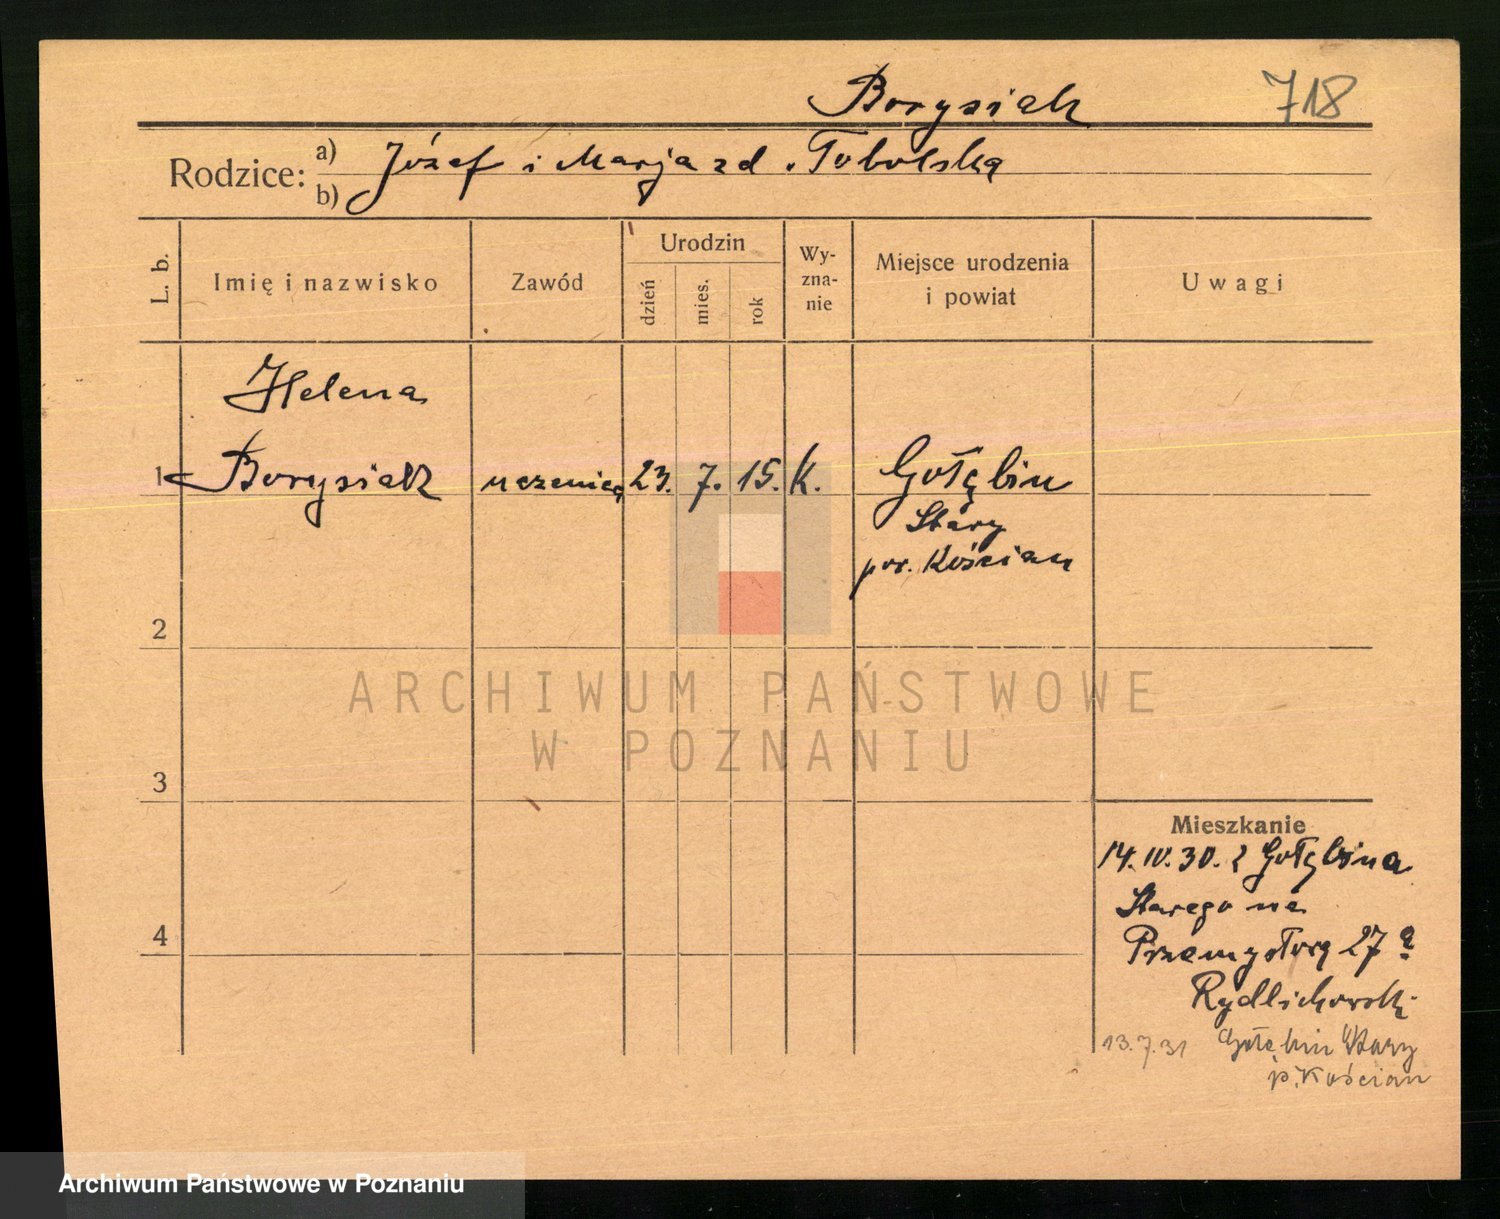 Borysiak 718
Rodzice: a) Józef i Marja z d. Tobolska
b)
L. b. Imię i nazwisko Zawód Urodzin dzień mies. rok Wy-zna-nie Miejsce urodzenia i powiat Uwagi
Helena
1 Borysiak uczenica 23. 7. 15. K. Gołębin
Stary
pow. Kościan
2
ARCHIWUM PAŃSTWOWE
W POZNANIU
3
Mieszkanie
14.IV.30. z Gołębina
Starego na
4
Przemysłową 27a
Rydlichowski
13.7.31 Gołębin Stary
p. Kościan
Archiwum Państwowe w Poznaniu